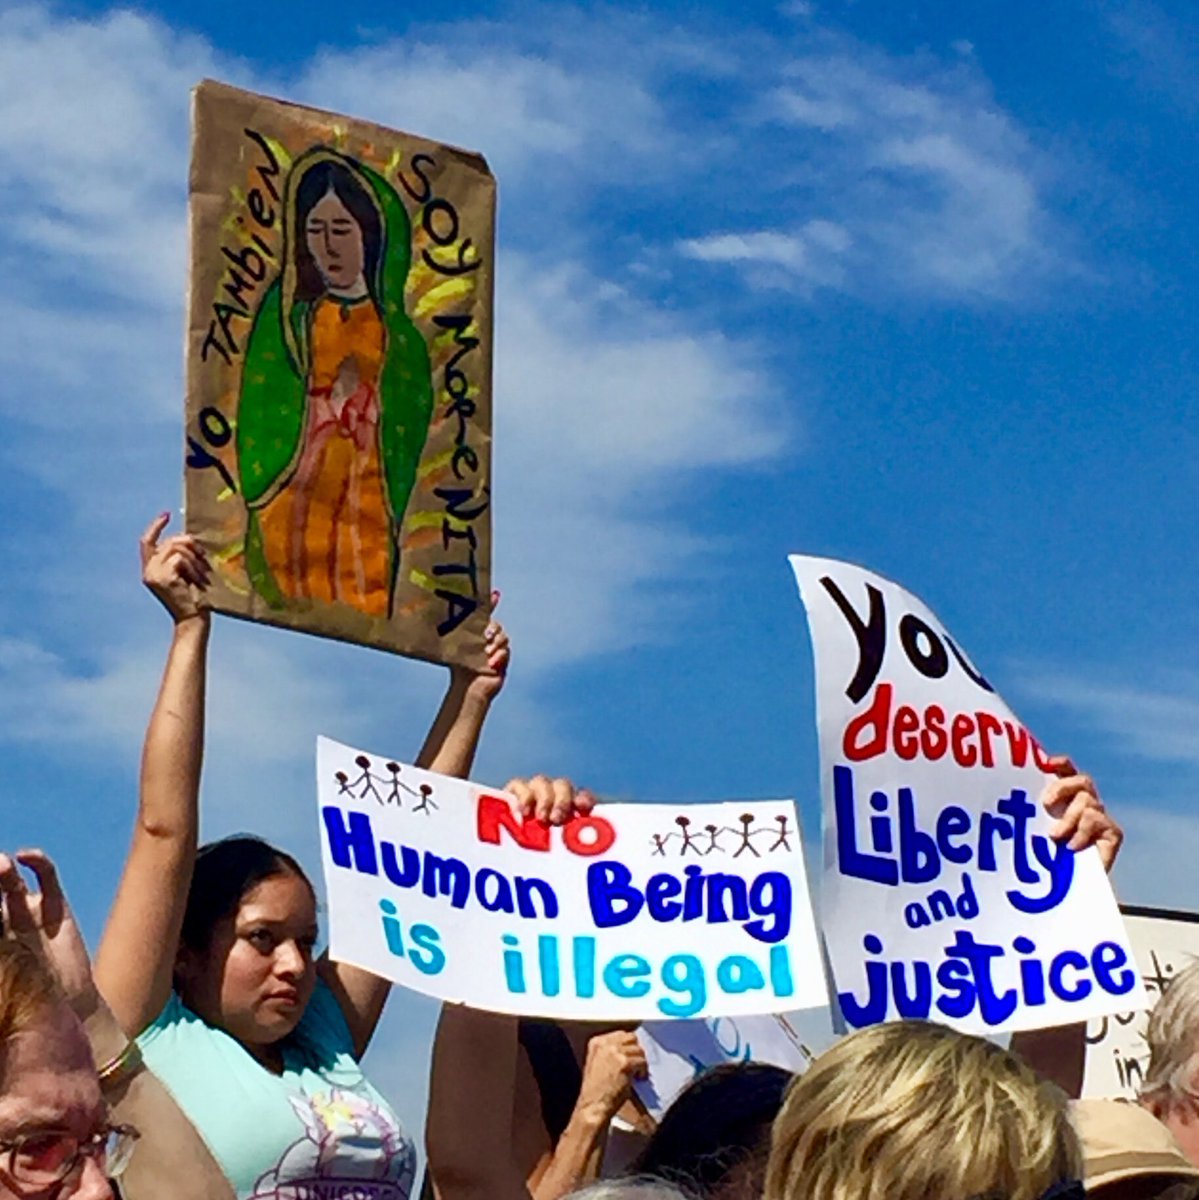 YO TAMbiEN
SOY MOReNITA
No
Human Being
is illegal
you
deserve
Liberty
and
justice
in